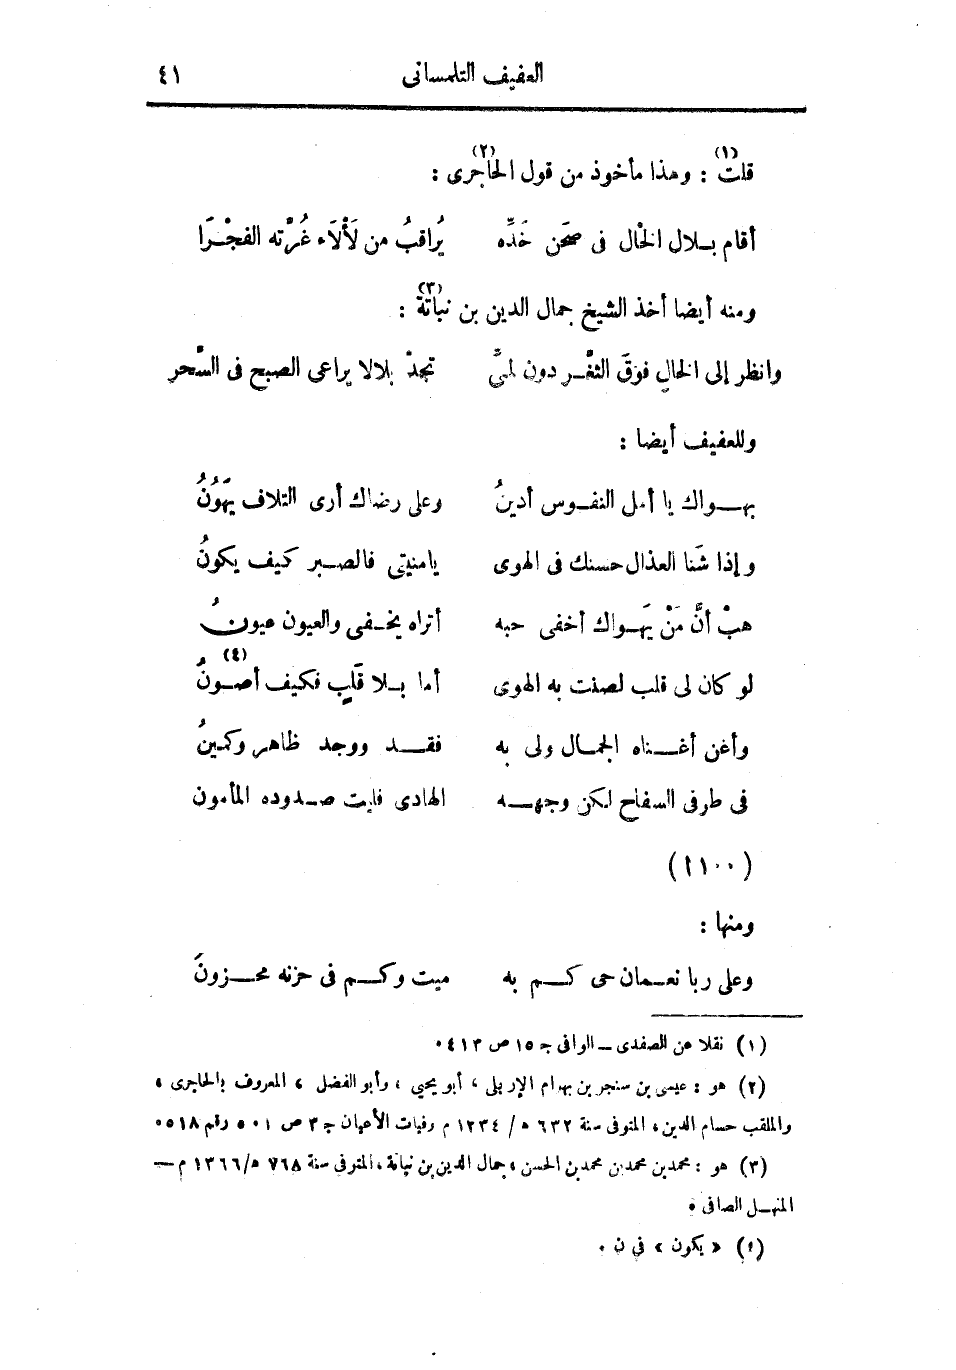 العفيف التلمسانى ٤١
قلت (١) : وهذا مأخوذ من قول الحاجرى (٢) :
أقام بلال الخْال فى صحَن خَدِّه يُراقبُ من لَأْلَاء غُرَّته الفجْرَا
ومنه أيضا أخذ الشيخ جمال الدين بن نباتة (٣) :
وانظر إلى الخال فوَقَ الثغَّر دون لمىًّ تجدْ بلالا يراعى الصبح فى السَّحر
وللعفيف أيضا :
بهواك يا أمل النفوس أدينُ وعلى رضاك أرى التلاف يَهُونُ
وإذا شَنا العذال حسنك فى الهوى يامنيتى فالصبر كيف يكونُ
هبْ أنَّ مَنْ يَهواك أخفى حبه أتراه يخفى والعيون عيونُ
لو كان لى قلب لصنت به الهوى أما بلا قَلبٍ فكيف أصونُ (٤)
وأغن أغناه الجمال ولى به فقد ووجد ظاهر وكمينُ
فى طرفى السفاح لكن وجهه الهادى فليت صدوده المأمون
(١٠٠ ا)
ومنها :
وعلى ربا نعمان حى كم به ميت وكم فى حزنه محزونَ
(١) نقلا عن الصفدى – الوافى ج ١٥ ص ٤١٣ .
(٢) هو : عيسى بن سنجر بن بهرام الإربلى ، أبو يحيى ، وأبو الفضل ، المعروف بالحاجرى ،
والملقب حسام الدين ، المتوفى سنة ٦٣٢ ه/ ١٢٣٤ م وفيات الأعيان ج ٣ ص ٥٠١ رقم ٥١٨ .
(٣) هو : محمد بن محمد بن محمد بن الحسن ، جمال الدين بن نباتة ، المتوفى سنة ٧٦٨ ه/ ١٣٦٦ م –
المنهل الصافى .
(٤) « يكون » في ن .